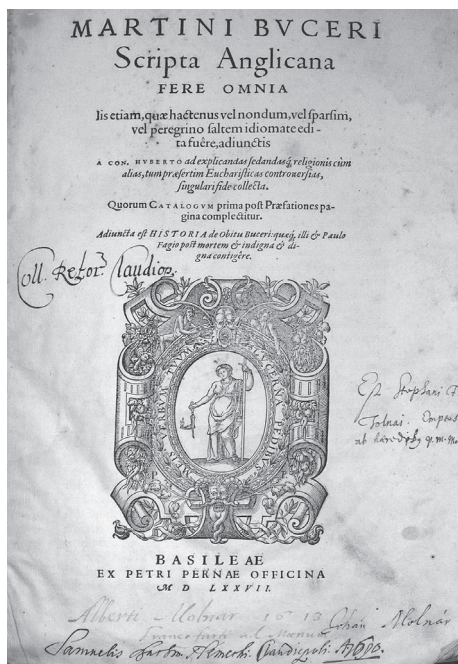 MARTINI BVCERI
Scripta Anglicana
FERE OMNIA
Iis etiam, quæ hactenus vel nondum, vel sparsim,
vel peregrino saltem idiomate edi-
ta fuêre, adiunctis
A CON. HVBERTO ad explicandas sedandasq́; religionis cùm
alias, tum præsertim Eucharisticas controuersias,
singulari fide collecta.
Quorum CATALOGVM prima post Præfationes pa-
gina complectitur.
Adiuncta est HISTORIA de Obitu Buceri: quæq́; illi & Paulo
Fagio post mortem & indigna & di-
gna contigêre.
Coll. Refor. Claudiop.
VERBVM TVVM
LVCERNA PEDIBVS
Est Stephani
Tolnai.
BASILEAE
EX PETRI PERNAE OFFICINA
M D LXXVII.
Alberti Molnar 1613 Johan Molnár
Francofurti ad Moenum
Samuelis Nemethi Claudiopoli